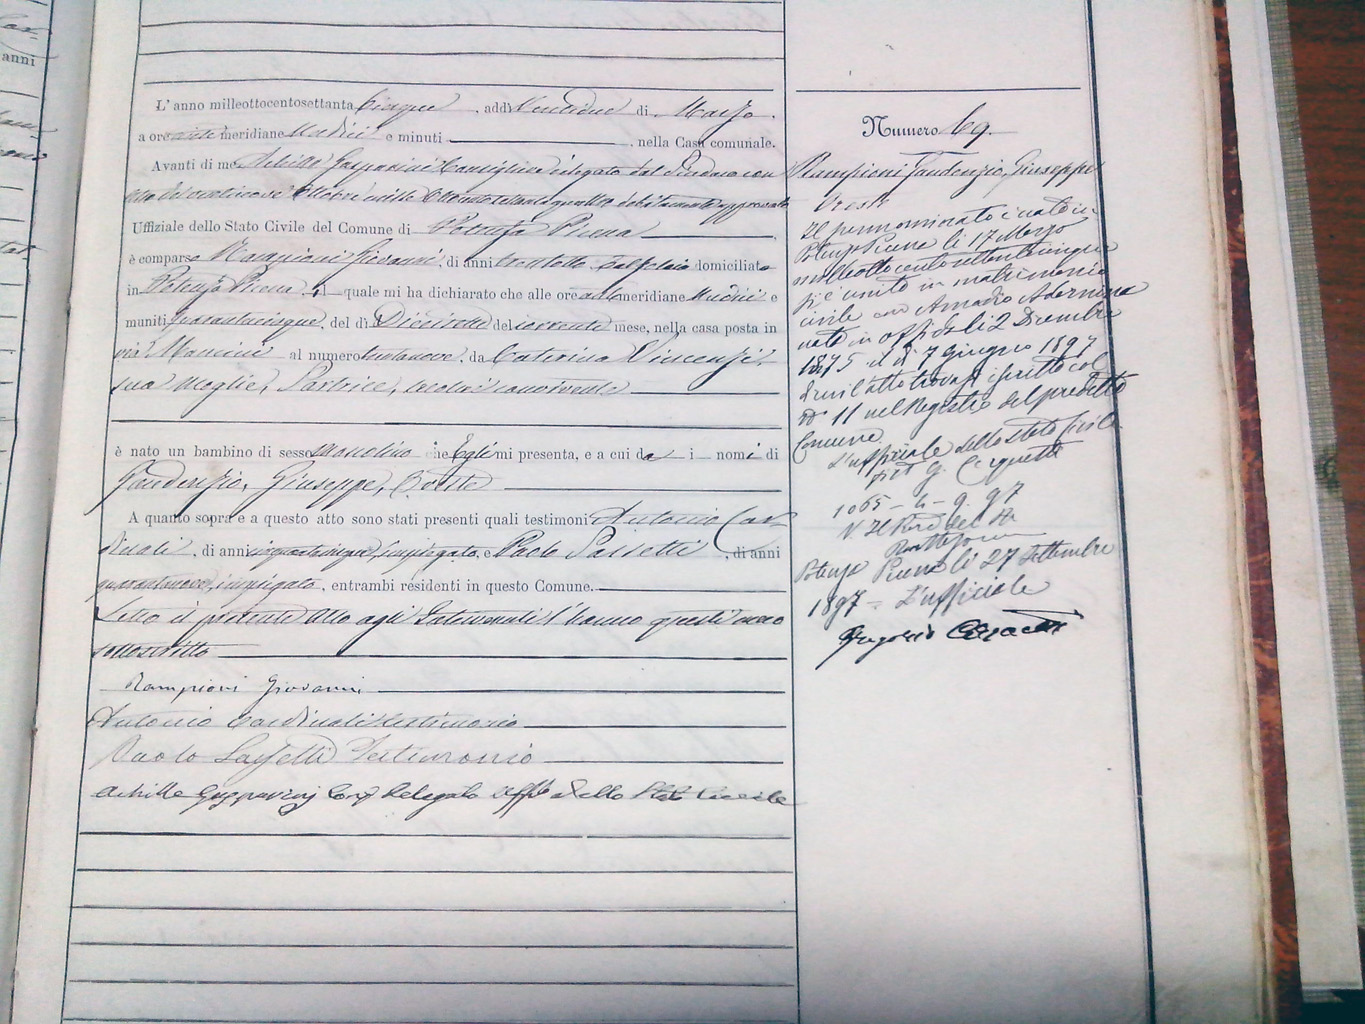 anni
L' anno milleottocentosettanta Cinque, addì Ventidue di Marzo.
a ore anti meridiane Undici e minuti , nella Casa comunale.
Avanti di me Achille Gasparini Consigliere delegato dal Sindaco con
Atto del ventinove Ottobre mille Ottocento settantaquattro debitamente approvato
Uffiziale dello Stato Civile del Comune di Potenza Picena
è comparso Rampioni Giovanni, di anni trentotto, calzolaio domiciliato
in Potenza Picena, il quale mi ha dichiarato che alle ore anti meridiane Undici e
muniti quarantacinque, del dì Diecisette del corrente mese, nella casa posta in
via Mancini al numero trentanove, da Caterina Vincenzi
sua moglie, Sartrice, seco lui convivente
è nato un bambino di sesso Mascolino che Egli mi presenta, e a cui da i nomi di
Gaudenzio, Giuseppe, Oreste
A quanto sopra e a questo atto sono stati presenti quali testimoni Antonio Car-
dinali, di anni cinquantacinque, impiegato, e Paolo , di anni
quarantanove, impiegato, entrambi residenti in questo Comune.
Letto il presente Atto agli Intervenuti l'hanno questi meco
sottoscritto
Rampioni Giovanni
Antonio Cardinali testimonio
Paolo Testimonio
Achille Gasparini Cons Delegato Uff dello Stato Civile
Numero 69.
Rampioni Gaudenzio, Giuseppe
Oreste
Il pernominato è nato in
Potenza Picena li 17 Marzo
milleottocentosettantacinque
si è unito in matrimonio
civile con Amadio Adernina
nata in Offida li 2 Dicembre
1875 il dì 7 giugno 1897
di cui l'atto trovasi iscritto col
N° 11 nel Registro del predetto
Comune
L'ufficiale dello stato civile
G.
1065 - 4 - 9. 97
V. Il
Potenza Picena li 27 Settembre
1897 = L'ufficiale